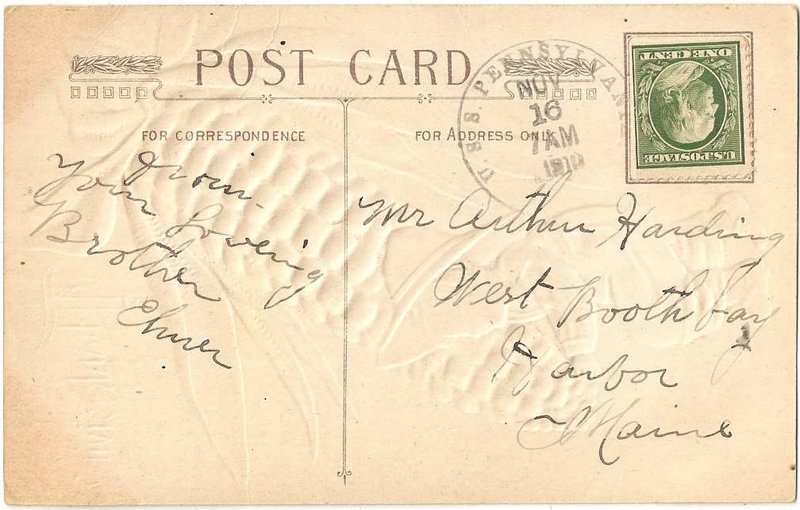 POST CARD
FOR CORRESPONDENCE
FOR ADDRESS ONLY
U.S.S. PENNSYLVANIA
NOV
16
7 AM
1910
U.S. POSTAGE
ONE CENT
From
Your Loveing
Brother
Elmer
Mr Arthur Harding
West Booth bay
Harbor
Maine